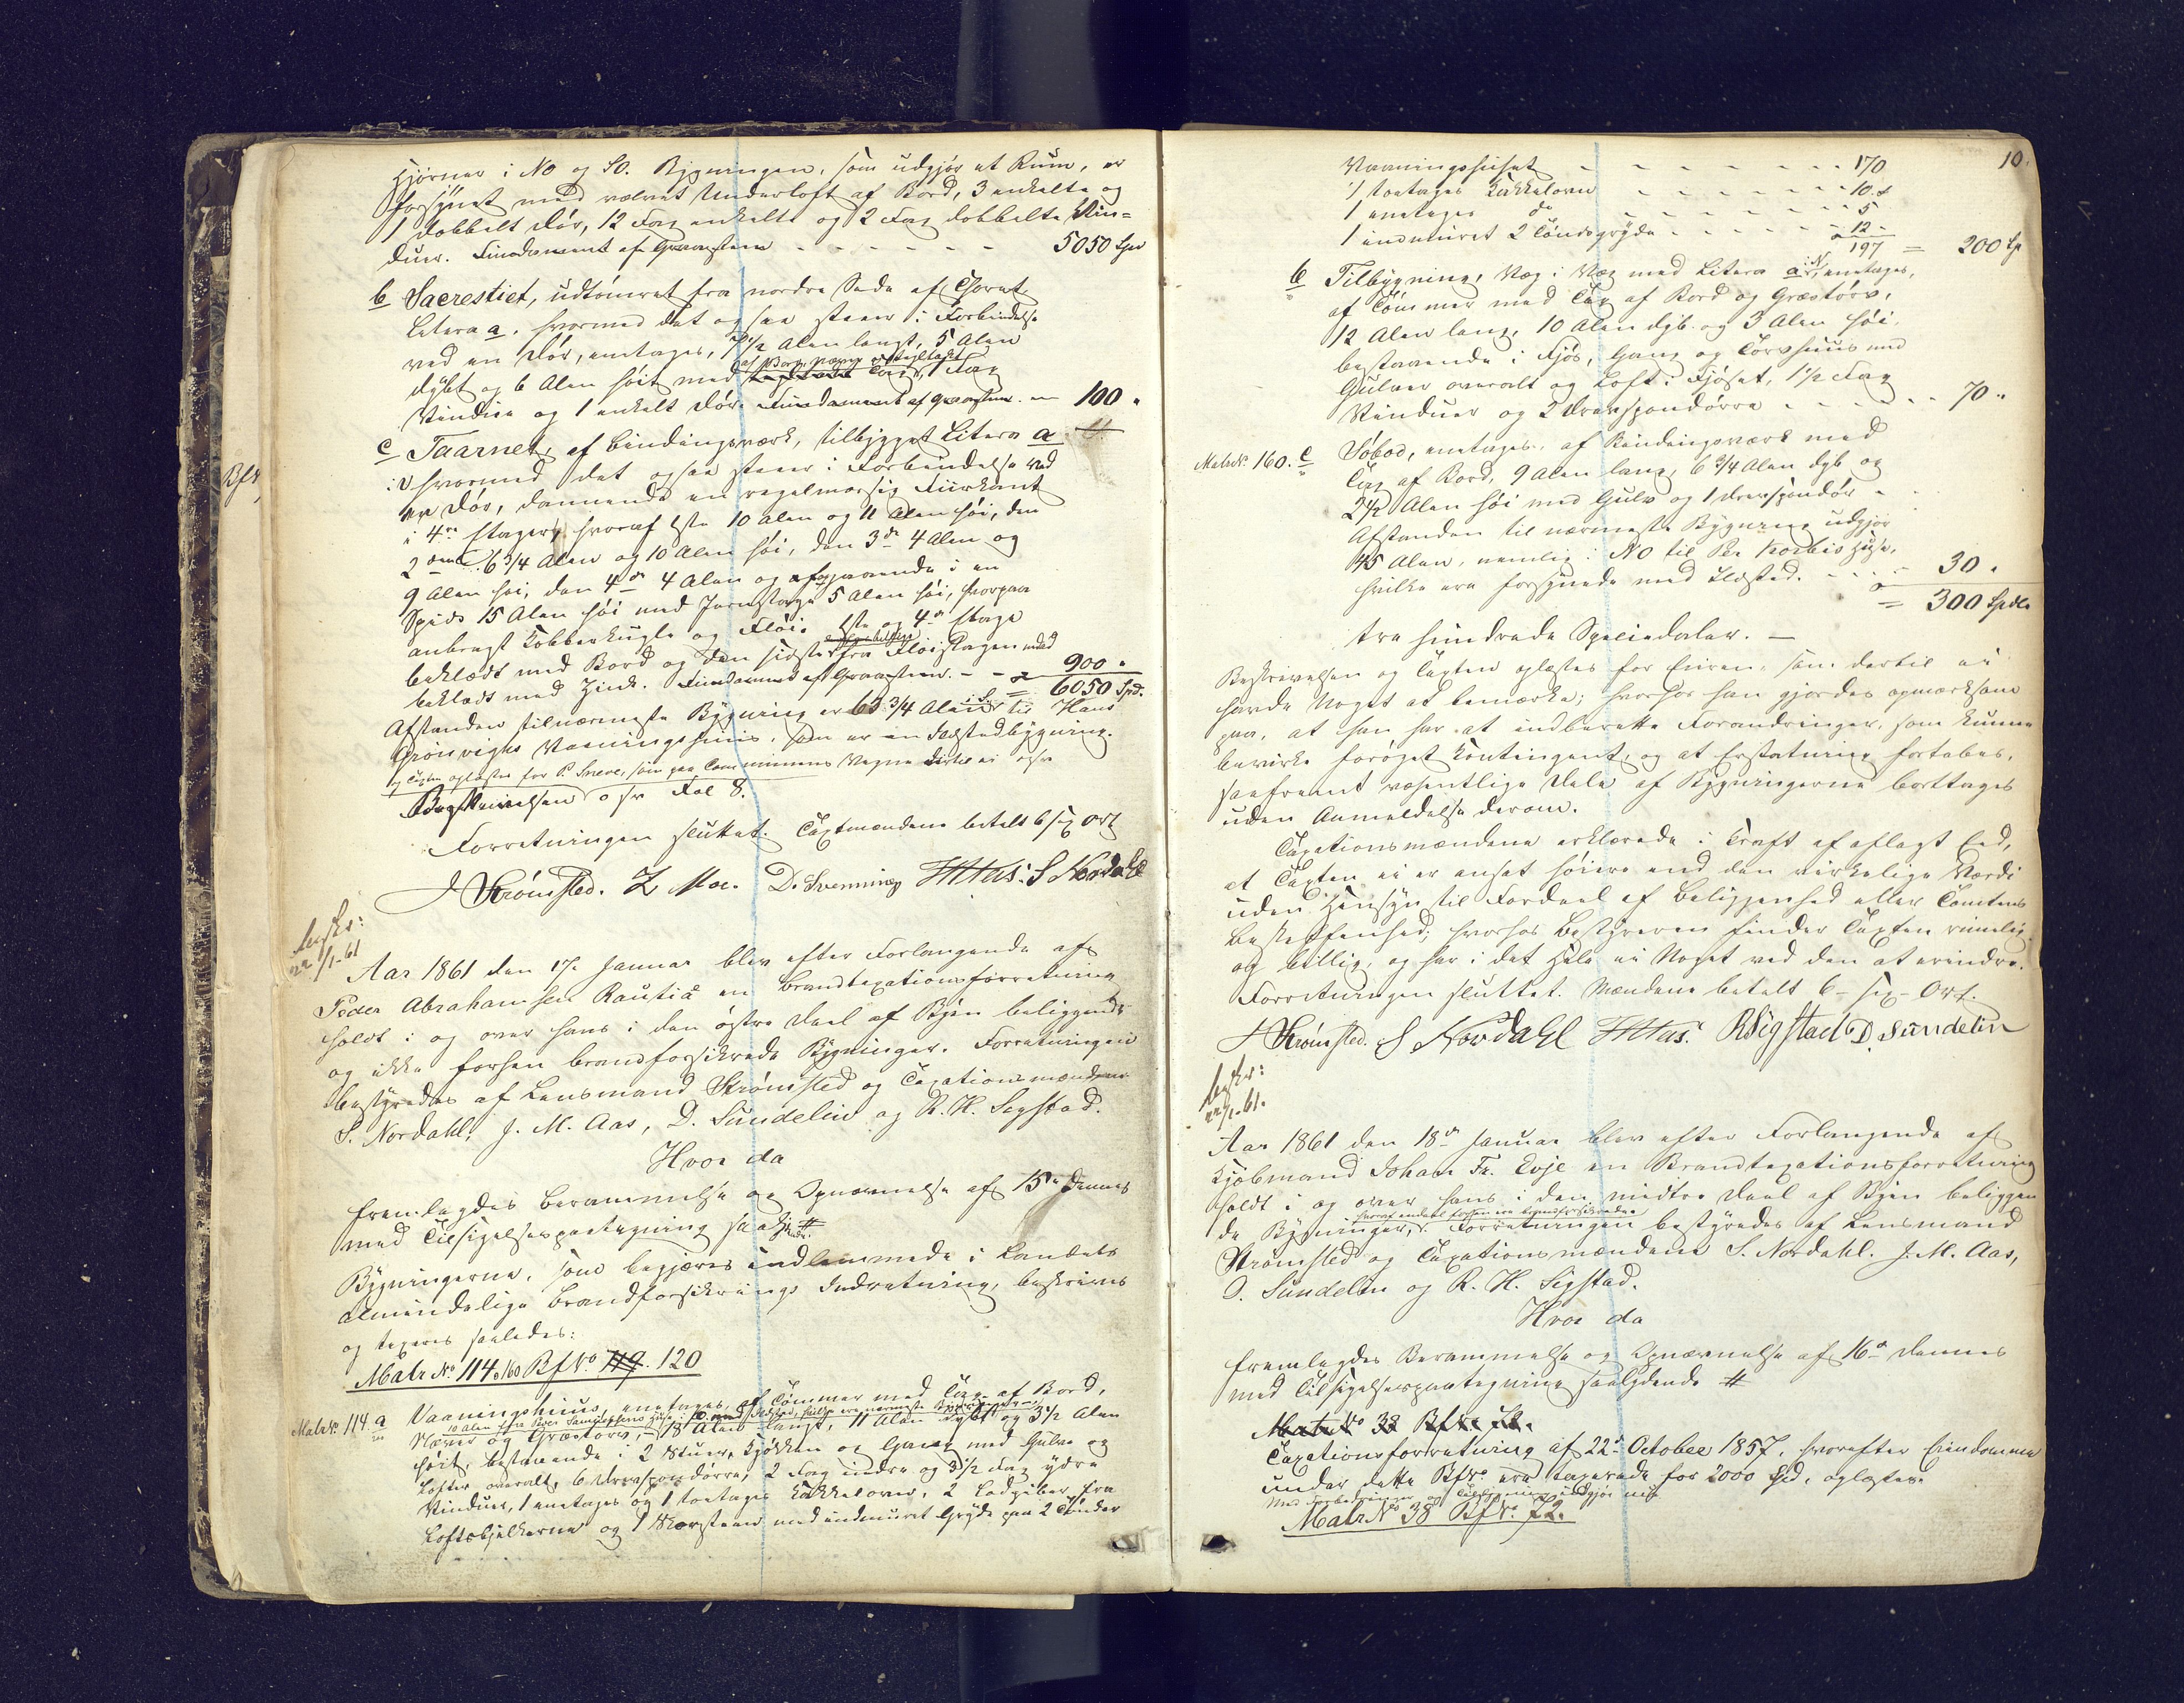 Hjörner i NO og SO. Bygningen, som udgjør et Rum, er
forsynet med vælvet Underloft af Bord, 3 enkelte og
1 dobbelt Dör, 12 Fag enkelte og 2 Fag dobbelte Vin=
duer. Fundament af Graasteen - - - - - - 5050 Spd
b Sacrestiet, udtömret fra nordre Side af Choret
Litera a. hvormed det ogsaa staaer i Forbindelse
ved en Dör, eenetages, 7 1/2 Alen langt, 5 Alen
dybt og 6 Alen höit med Tag, 1 Fag
Vindue og 1 enkelt Dör. Fundament af Graasteen. - 100 "
c Taarnet, af Bindingsværk, tilbygget Litera a
i V hvormed det ogsaa staaer i Forbindelse ved
en Dör, dannende en regelmæssig Fiirkant
i 4re Etager, hvoraf 1ste 10 Alen og 11 Alen höi, den
2den 6 3/4 Alen og 10 Alen höi, den 3de 4 Alen og
9 Alen höi, den 4de 4 Alen og opgaaende i en
Spids 15 Alen höi med Jernstange 5 Alen höi, hvorpaa
anbragt Kobberkugle og Flöi. 1ste og 4de Etage
beklædt med Bord og den sidste fra Flöistangen ned
beklædt med Zink. Fundament af Graasteen. - - 900 "
= 6050 Spd.
Afstanden til nærmeste Bygning er 63 3/4 Alen i S. til Hans
Grönvighs Vaaningshuus, som er en Ildstedbygning.
og Taxten oplæstes for P. Smeve, som paa Communens Vegne dertil ei osv
Beskrivelsen osv Fol 8.
Forretningen sluttet. Taxtmændene betalt 6 sex Ort
J Strömsted. Z Moe. D. Svenning JMAas: S Nordahl
beskr:
22/1-61
Aar 1861 den 17de Januar blev efter Forlangende af
Peder Abrahamsen Rautiå en Brandtaxationsforretning
holdt i og over hans i den östre Deel af Byen beliggende
og ikke forhen brandforsikrede Bygninger. Forretningen
bestyredes af Lensmand Strömsted og Taxationsmændene
S. Nordahl, J. M. Aas, D. Sundelin og R. H. Sigstad.
Hvor da
fremlagdes Berammelse og Opnævnelse af 15de dennes
med Tilsigelsespaategning saalydende #
Bygningerne, som begjæres indlemmede i Landets
almindelige Brandforsikrings Indretning, beskrives
og taxeres saaledes:
Matr No 114, 160 Bf No 119. 120
Matr No. 114. a Vaaningshuus, eenetages, af Tömmer med Tag af Bord,
Næver og Græstörv, 18 Alen langt, 11 Alen dybt og 3 1/2 Alen
höit, bestaaende i 2 Stuer, Kjökken og Gang med Gulve og
Lofter overalt, 6 Drevspondörre, 2 Fag indre og 3 1/2 Fag ydre
Vinduer, 1 eenetages og 1 toetages Kakkelovn, 2 Ladpiber fra
Loftsbjelkerne og 1 Skorsteen med indmuret Gryde paa 2 Tönder
10.
Vaaningshuset - - - - - - - 170
1 toetages Kakkelovn - - - - - - 10 "
1 eenetages do - - - - - - 5
1 indmuret 2 Töndsgryde - - - - - 12 -
197 = 200 Sp
b Tilbygning, Væg i Væg med Litera a i N, eenetages,
af Tömmer med Tag af Bord og Græstörv,
12 Alen lang, 10 Alen dyb og 3 Alen höi,
bestaaende i Fjös, Gang og Törvhuus med
Gulver overalt og Loft i Fjöset, 1 1/2 Fag
Vinduer og 2 Drevspondörre - - - - - - 70 "
Matr No. 160. c Söbod, eenetages, af Bindingsværk med
Tag af Bord, 9 Alen lang, 6 3/4 Alen dyb og
2 1/2 Alen höi med Gulv og 1 Drevspondör -
Afstanden til nærmeste Bygning udgjör
45 Alen, nemlig i NO til Per Korbis Huse,
hvilke ere forsynede med Ildsted. - - - - 30 "
= 300 Spdlr
tre hundrede Speciedaler. —
Beskrivelsen og Taxten oplæstes for Eieren, som dertil ei
havde Noget at bemærke; hvorhos han gjordes opmærksom
paa, at han har at indberette Forandringer, som kunne
bevirke foröget Kontingent, og at Erstatning fortabes,
saafremt væsentlige Dele af Bygningerne borttages
uden Anmeldelse derom.
Taxationsmændene erklærede i Kraft af aflagt Eed,
at Taxten ei er ansat höiere end den virkelige Værdi
uden Hensyn til Fordeel af Beliggenhed eller Tomtens
Beskaffenhed; hvorhos Bestyreren finder Taxten rimelig
og billig, og har i det Hele ei Noget ved den at erindre.
Forretningen sluttet. Mændene betalt 6 - sex - Ort.
J Strömsted. S Nordahl JMAas: RSigstad D. Sundelin
beskr:
22/1-61.
Aar 1861 den 18de Januar blev efter Forlangende af
Kjöbmand Johan Fr. Evje en Brandtaxationsforretning
holdt i og over hans i den midtre Deel af Byen beliggen
hvoraf endeel forhen ere brandforsikrede
de Bygninger, Forretningen bestyredes af Lensmand
Strömsted og Taxationsmændene S. Nordahl. J. M. Aas,
D. Sundelin og R. H. Sigstad.
Hvor da
fremlagdes Berammelse og Opnævnelse af 16de dennes
med Tilsigelsespaategning saalydende #
Matr No 38 Bf No 72.
Taxationsforretning af 22de October 1857, hvorefter Eiendommen
under dette Bf No ere taxerede for 2000 Spd, oplæstes.
Med Forbedringer og Tilbygning udgjör nu
Matr No 38 Bf No. 72.